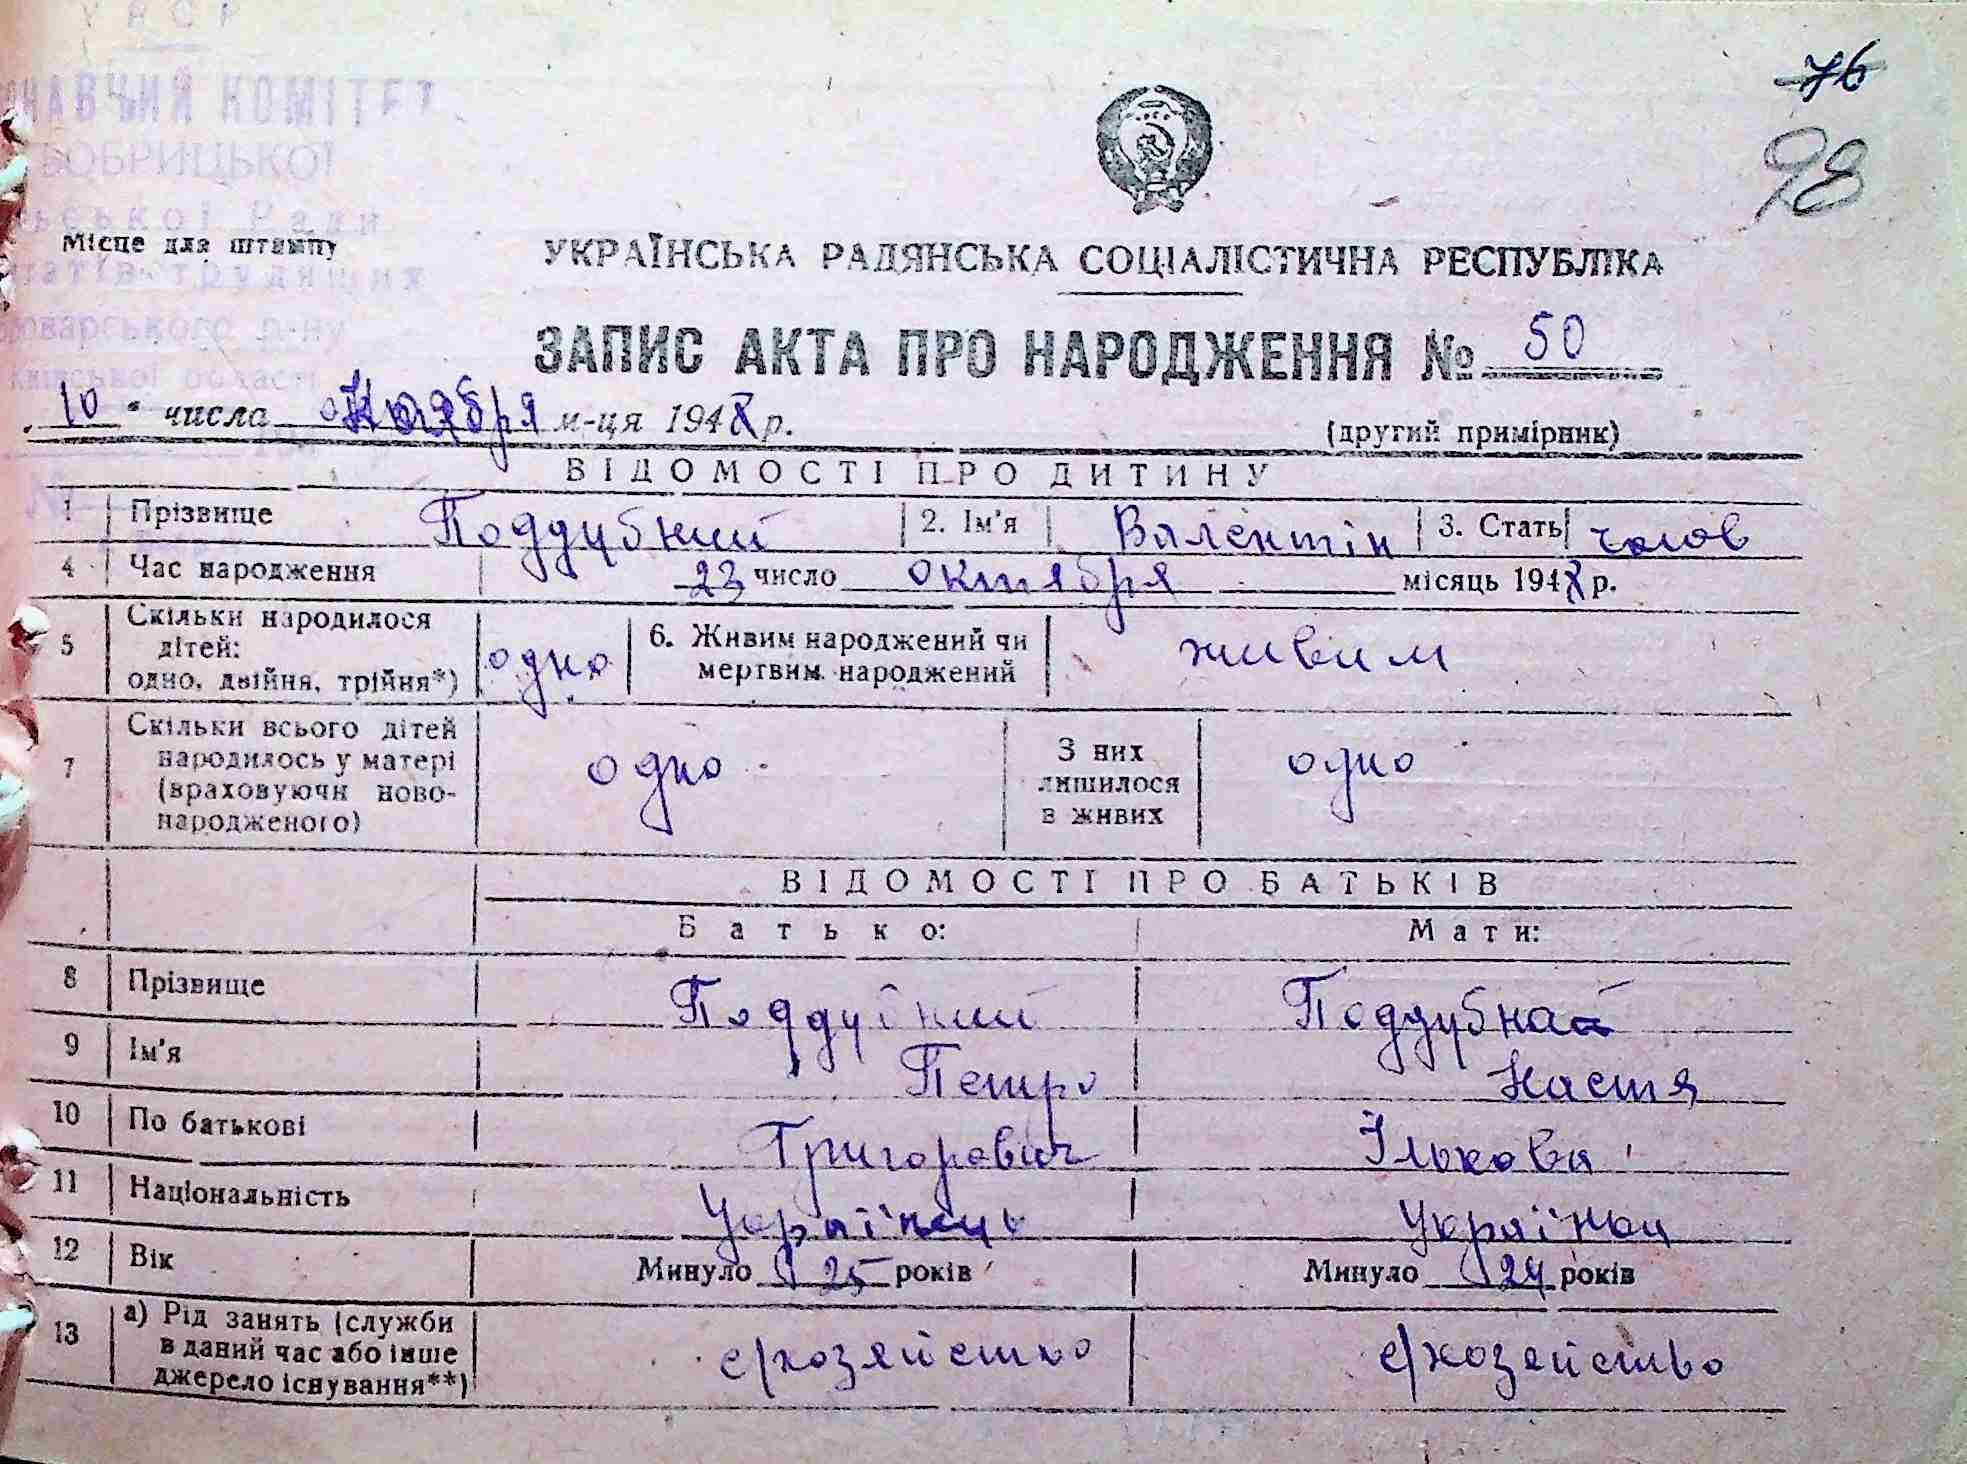 УНСР
НАВЧИЙ КОМІТЕТ
БОБРИЦЬКОЇ
ської Ради
татів трудящих
роварського р-ну
Київської області
76
98
Місце для штампу
УКРАЇНСЬКА РАДЯНСЬКА СОЦІАЛІСТИЧНА РЕСПУБЛІКА
ЗАПИС АКТА ПРО НАРОДЖЕННЯ № 50
10 " числа ноября м-ця 194 р.
(другий примірник)
ВІДОМОСТІ ПРО ДИТИНУ
1 Прізвище Поддубний 2. Ім'я Валентін 3. Стать чолов
4 Час народження 23 число октября місяць 194 р.
5 Скільки народилося дітей: одно, двійня, трійня*) одно 6. Живим народжений чи мертвим народжений живим
7 Скільки всього дітей народилось у матері (враховуючи новонародженого) одно З них лишилося в живих одно
ВІДОМОСТІ ПРО БАТЬКІВ
Батько: Мати:
8 Прізвище Поддубний Поддубная
9 Ім'я Петро Настя
10 По батькові Григоревич Ількова
11 Національність Українець Українка
12 Вік Минуло 25 років Минуло 24 років
13 а) Рід занять (служби в даний час або інше джерело існування**) с/хозяйство с/хозяйство